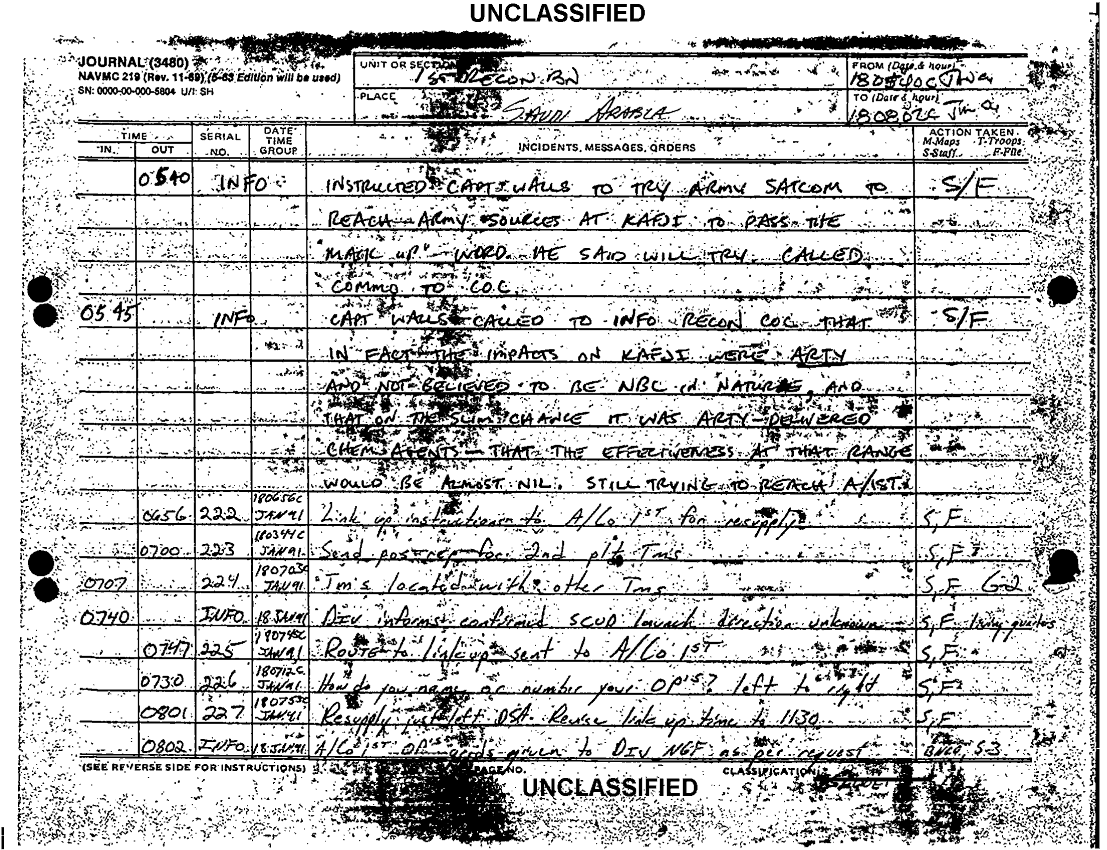 UNCLASSIFIED
JOURNAL (3480)
NAVMC 219 (Rev. 11-69) (6-63 Edition will be used)
SN: 0000-00-000-5804 U/I: SH
UNIT OR SECTION
1ST RECON BN
FROM (Date & hour)
180540C JAN 91
PLACE
SAUDI ARABIA
TO (Date & hour)
180802C JAN 91
TIME
IN. OUT
SERIAL NO.
DATE TIME GROUP
INCIDENTS, MESSAGES, ORDERS
ACTION TAKEN
M-Maps T-Troops
S-Staff F-File
0540 INFO INSTRUCTED CAPT WALLS TO TRY ARMY SATCOM TO S/F
REACH ARMY SOURCES AT KAFJI TO PASS THE
"MASK UP" WORD. HE SAID WILL TRY. CALLED
COMMO TO COC
0545 INFO CAPT WALLS CALLED TO INFO RECON COC THAT S/F
IN FACT THE IMPACTS ON KAFJI WERE ARTY
AND NOT BELIEVED TO BE NBC IN NATURE, AND
THAT ON THE SLIM CHANCE IT WAS ARTY DELIVERED
CHEM AGENTS - THAT THE EFFECTIVENESS AT THAT RANGE
WOULD BE ALMOST NIL. STILL TRYING TO REACH A/1ST.
0656 222 180656C JAN 91 Link up instructions to A/Co 1ST for resupply S,F
0700 223 JAN 91 Send posrep for 2nd plt Tms S,F
0707 224 180703C JAN 91 Tm's located with other Tms S,F G-2
0740 INFO 18 JAN 91 Div informs confirmed SCUD launch direction unknown S,F
0747 225 180745C JAN 91 Route to linkup sent to A/Co 1ST S,F
0730 226 180712C JAN 91 How do you name or number your OP's? left to right S,F
0801 227 180755C JAN 91 Resupply just left DSA. Revise link up time to 1130 S,F
0802 INFO 18 JAN 91 A/Co 1ST OP given to DIV NGF as per request S-3
(SEE REVERSE SIDE FOR INSTRUCTIONS) PAGE NO. CLASSIFICATION
UNCLASSIFIED